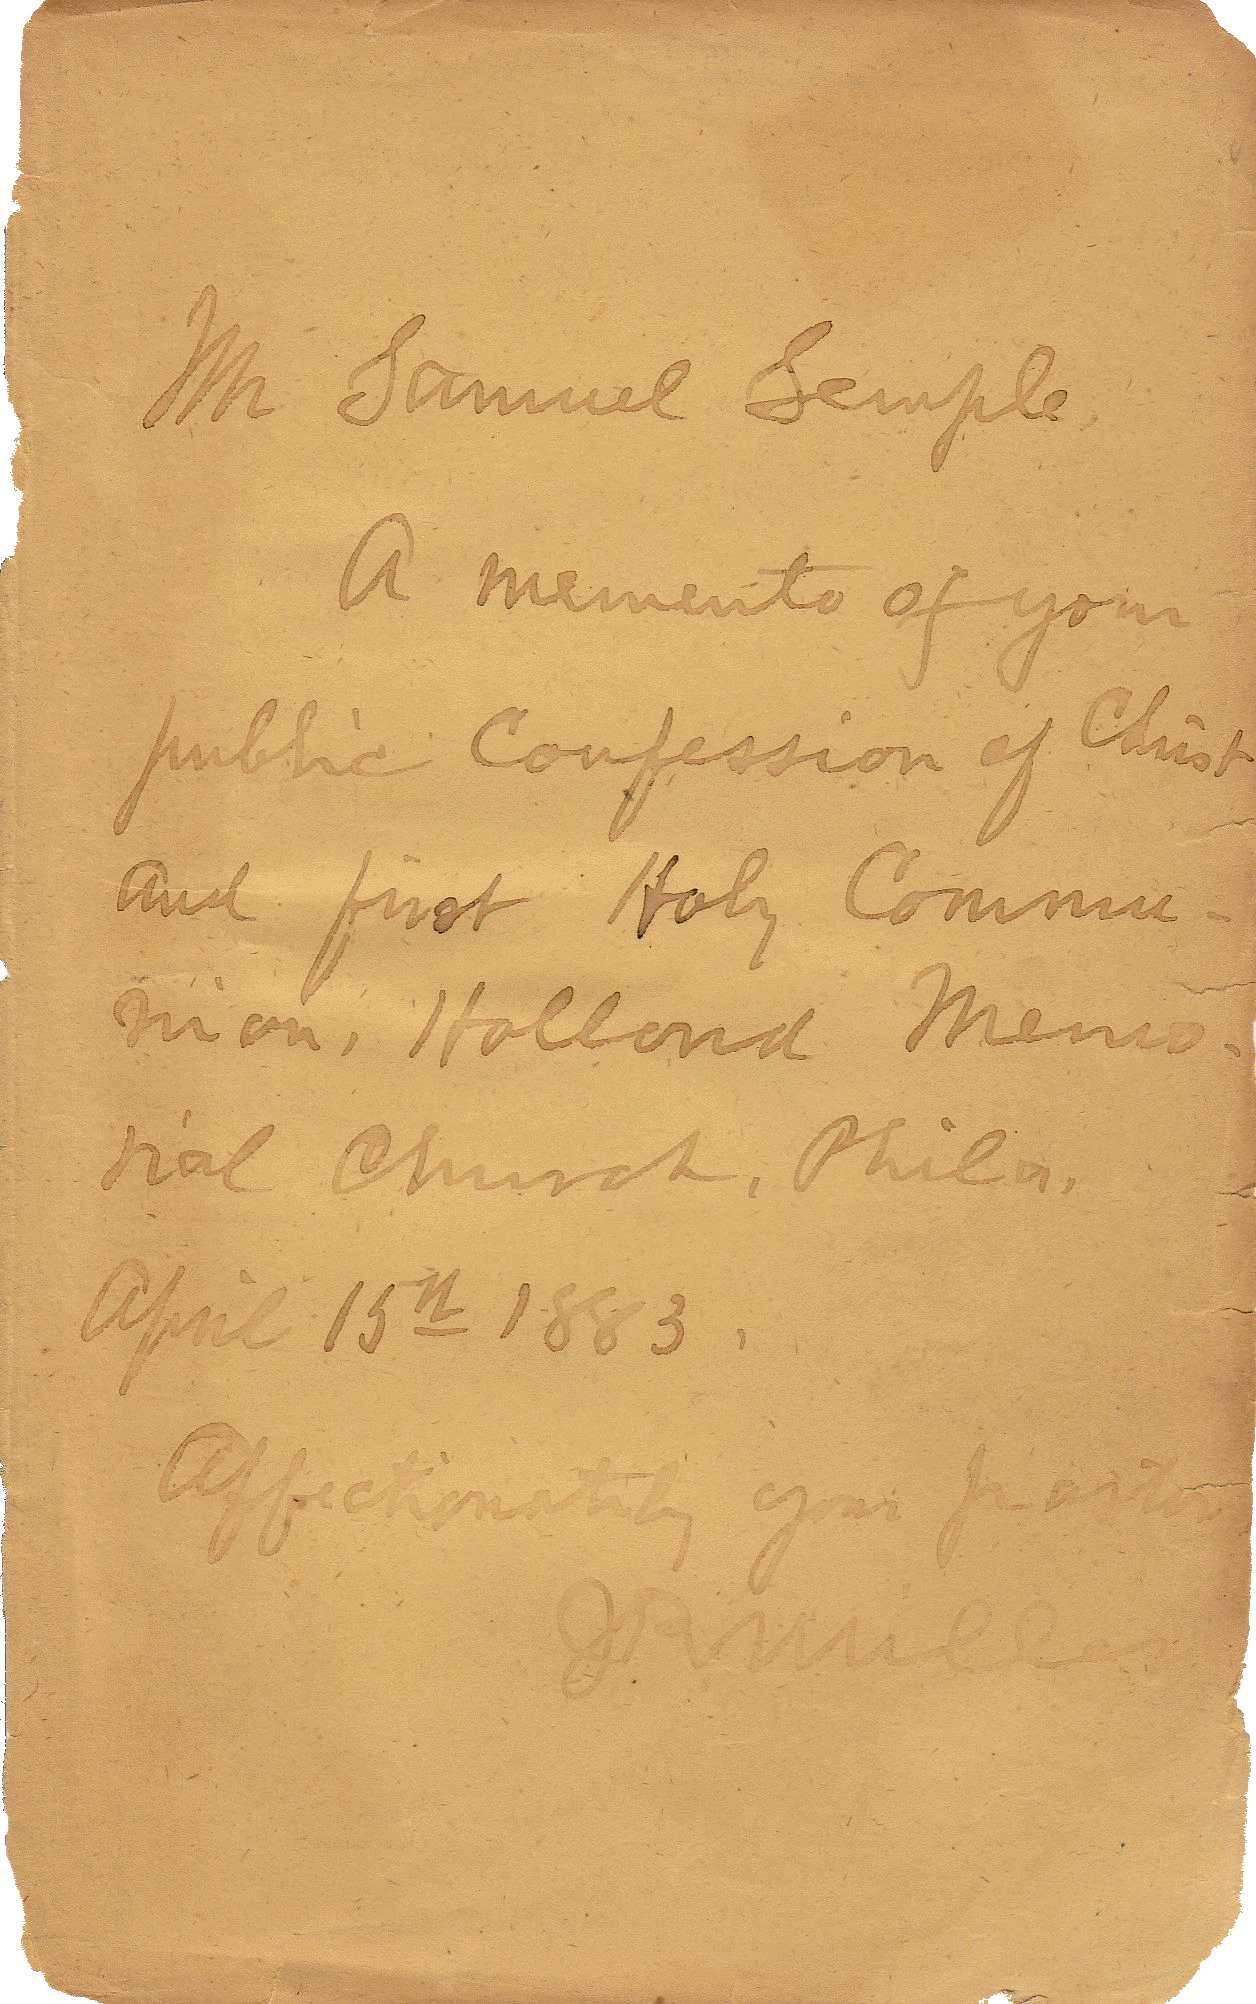 Mr Samuel Semple,
A memento of your
public Confession of Christ
and first Holy Commu-
nion, Hollond Memo-
rial Church, Phila,
April 15th 1883,
Affectionately your pastor
J R Miller